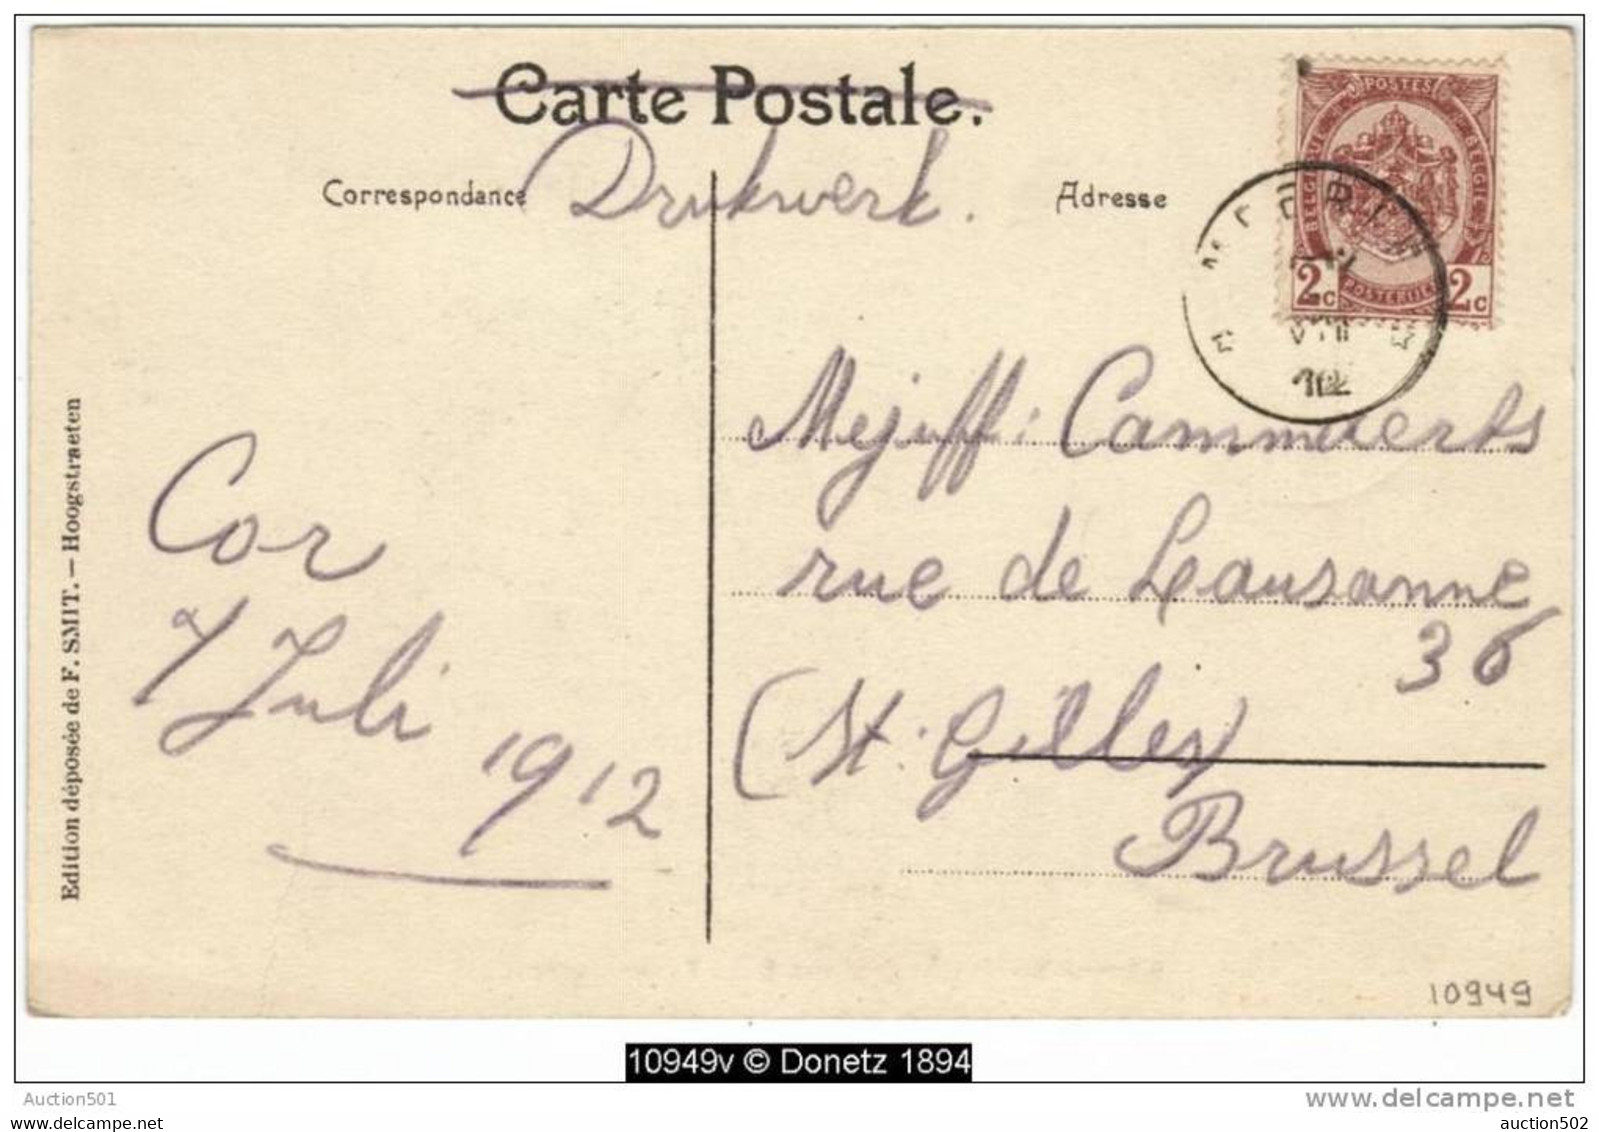 Carte Postale.
Drukwerk.
Correspondance
Adresse
POSTES
BELGIQUE
BELGIË
2c POSTERIJEN 2c
VIII
Mejuff: Cammaerts
rue de Lausanne
36
(St. Gilles)
Brussel
Cor
7 Juli
1912
Edition déposée de F. SMIT. – Hoogstraeten
10949
10949v © Donetz 1894
Auction501
www.delcampe.net
auction502